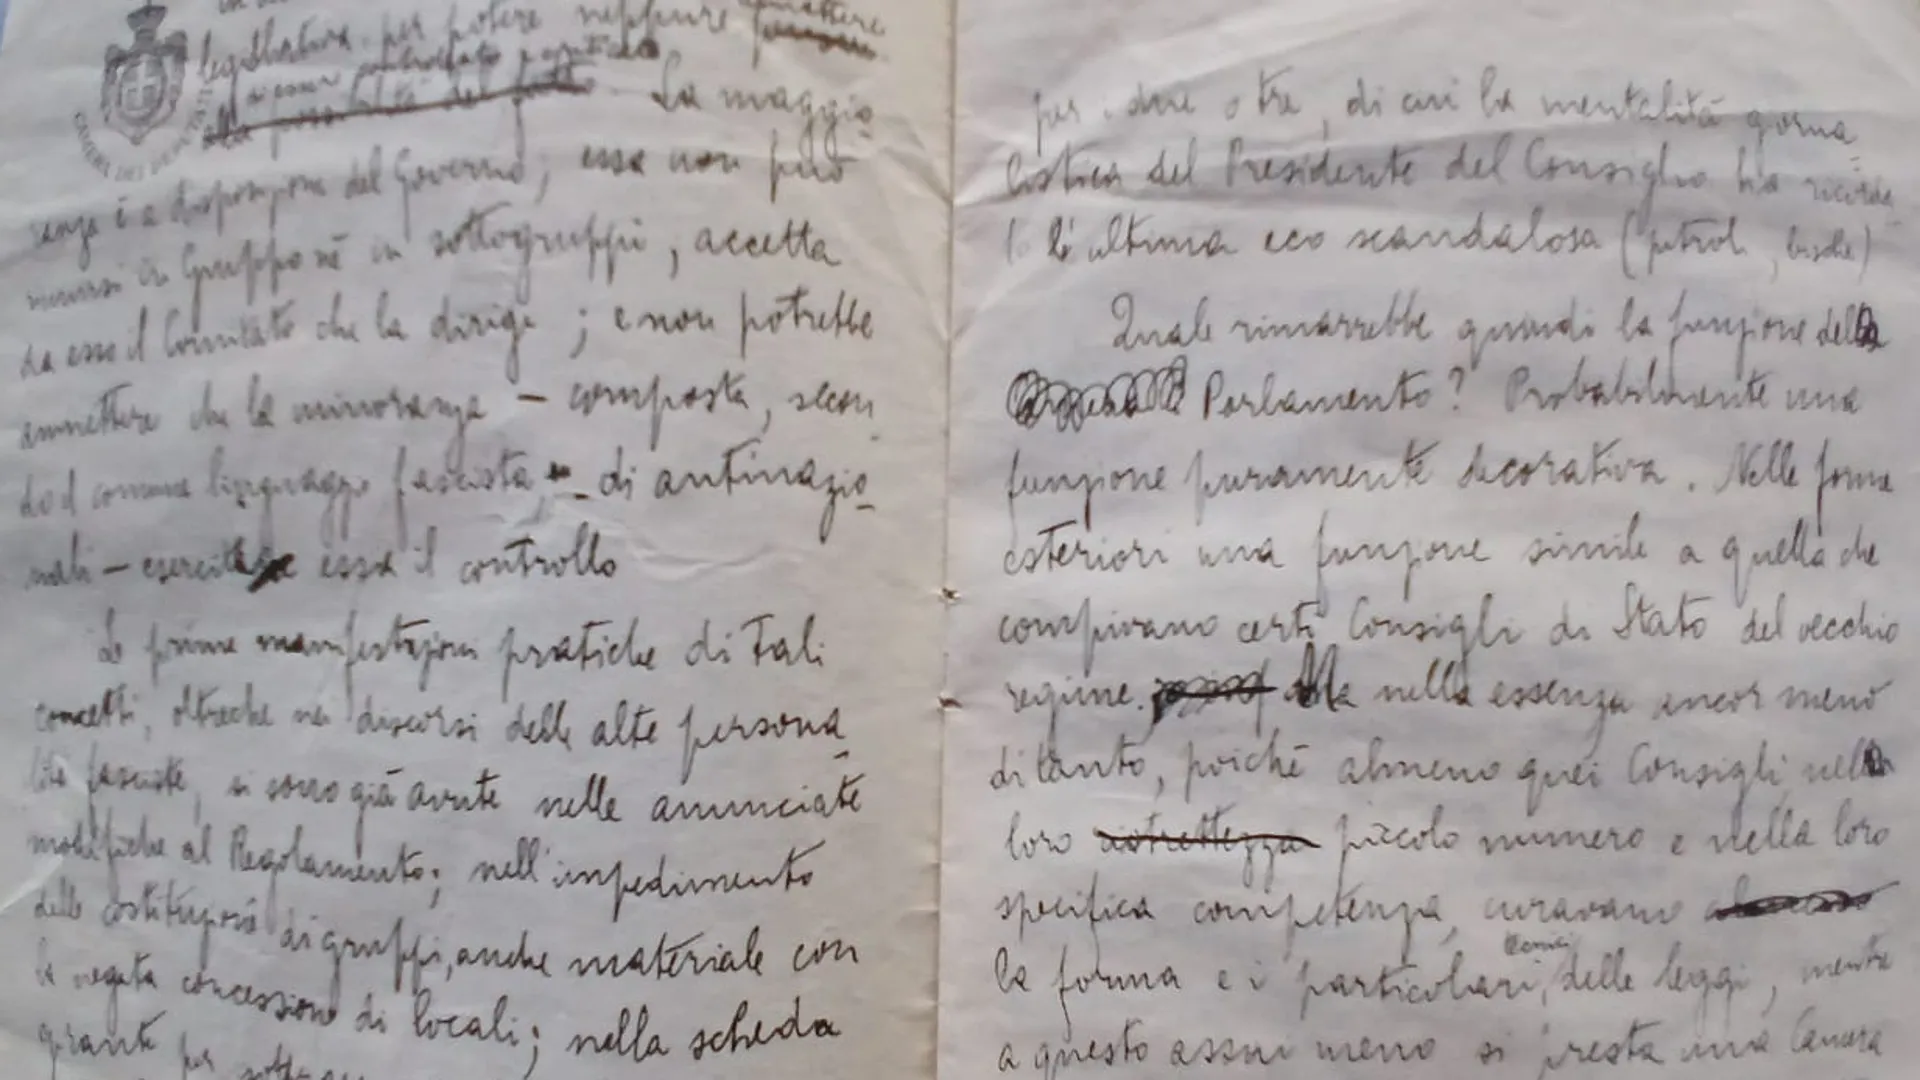 legislatura per potere neppure
si possa controllato
alla possibilità del
CAMERA DEI DEPUTATI
La maggio
ranza è a disposizione del Governo; essa non può
riunirsi in Gruppo nè in sottogruppi, accetta
da esso il Comitato che la dirige; e non potrebbe
ammettere che la minoranza – composta, secon
do il comune linguaggio fascista, – di antinazio
nali – esercitasse essa il controllo
Le prime manifestazioni pratiche di tali
concetti, oltreche nei discorsi delle alte persona
lità fasciste, si sono già avute nelle annunciate
modifiche al Regolamento; nell'impedimento
delle costituzioni di gruppi, anche materiale con
la negata concessione di locali; nella scheda
grante per
per i due o tre, di cui la mentalità giorna
listica del Presidente del Consiglio ha ricorda
to l'ultima eco scandalosa (petroli, bische)
Quale rimarrebbe quindi la funzione del
Parlamento? Probabilmente una
funzione puramente decorativa. Nelle forme
esteriori una funzione simile a quella che
compivano certi Consigli di Stato del vecchio
regime. nella essenza ancor meno
di tanto, poichè almeno quei Consigli, nel
loro ristrettezza piccolo numero e nella loro
specifica competenza, curavano
tecnici
la forma e i particolari, delle leggi, mentre
a questo assai meno si presta una Camera